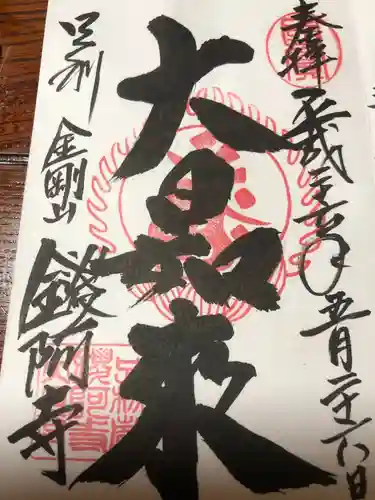 奉拝
平成二十六年五月二十六日
大日如来
足利
金剛山
鑁阿寺